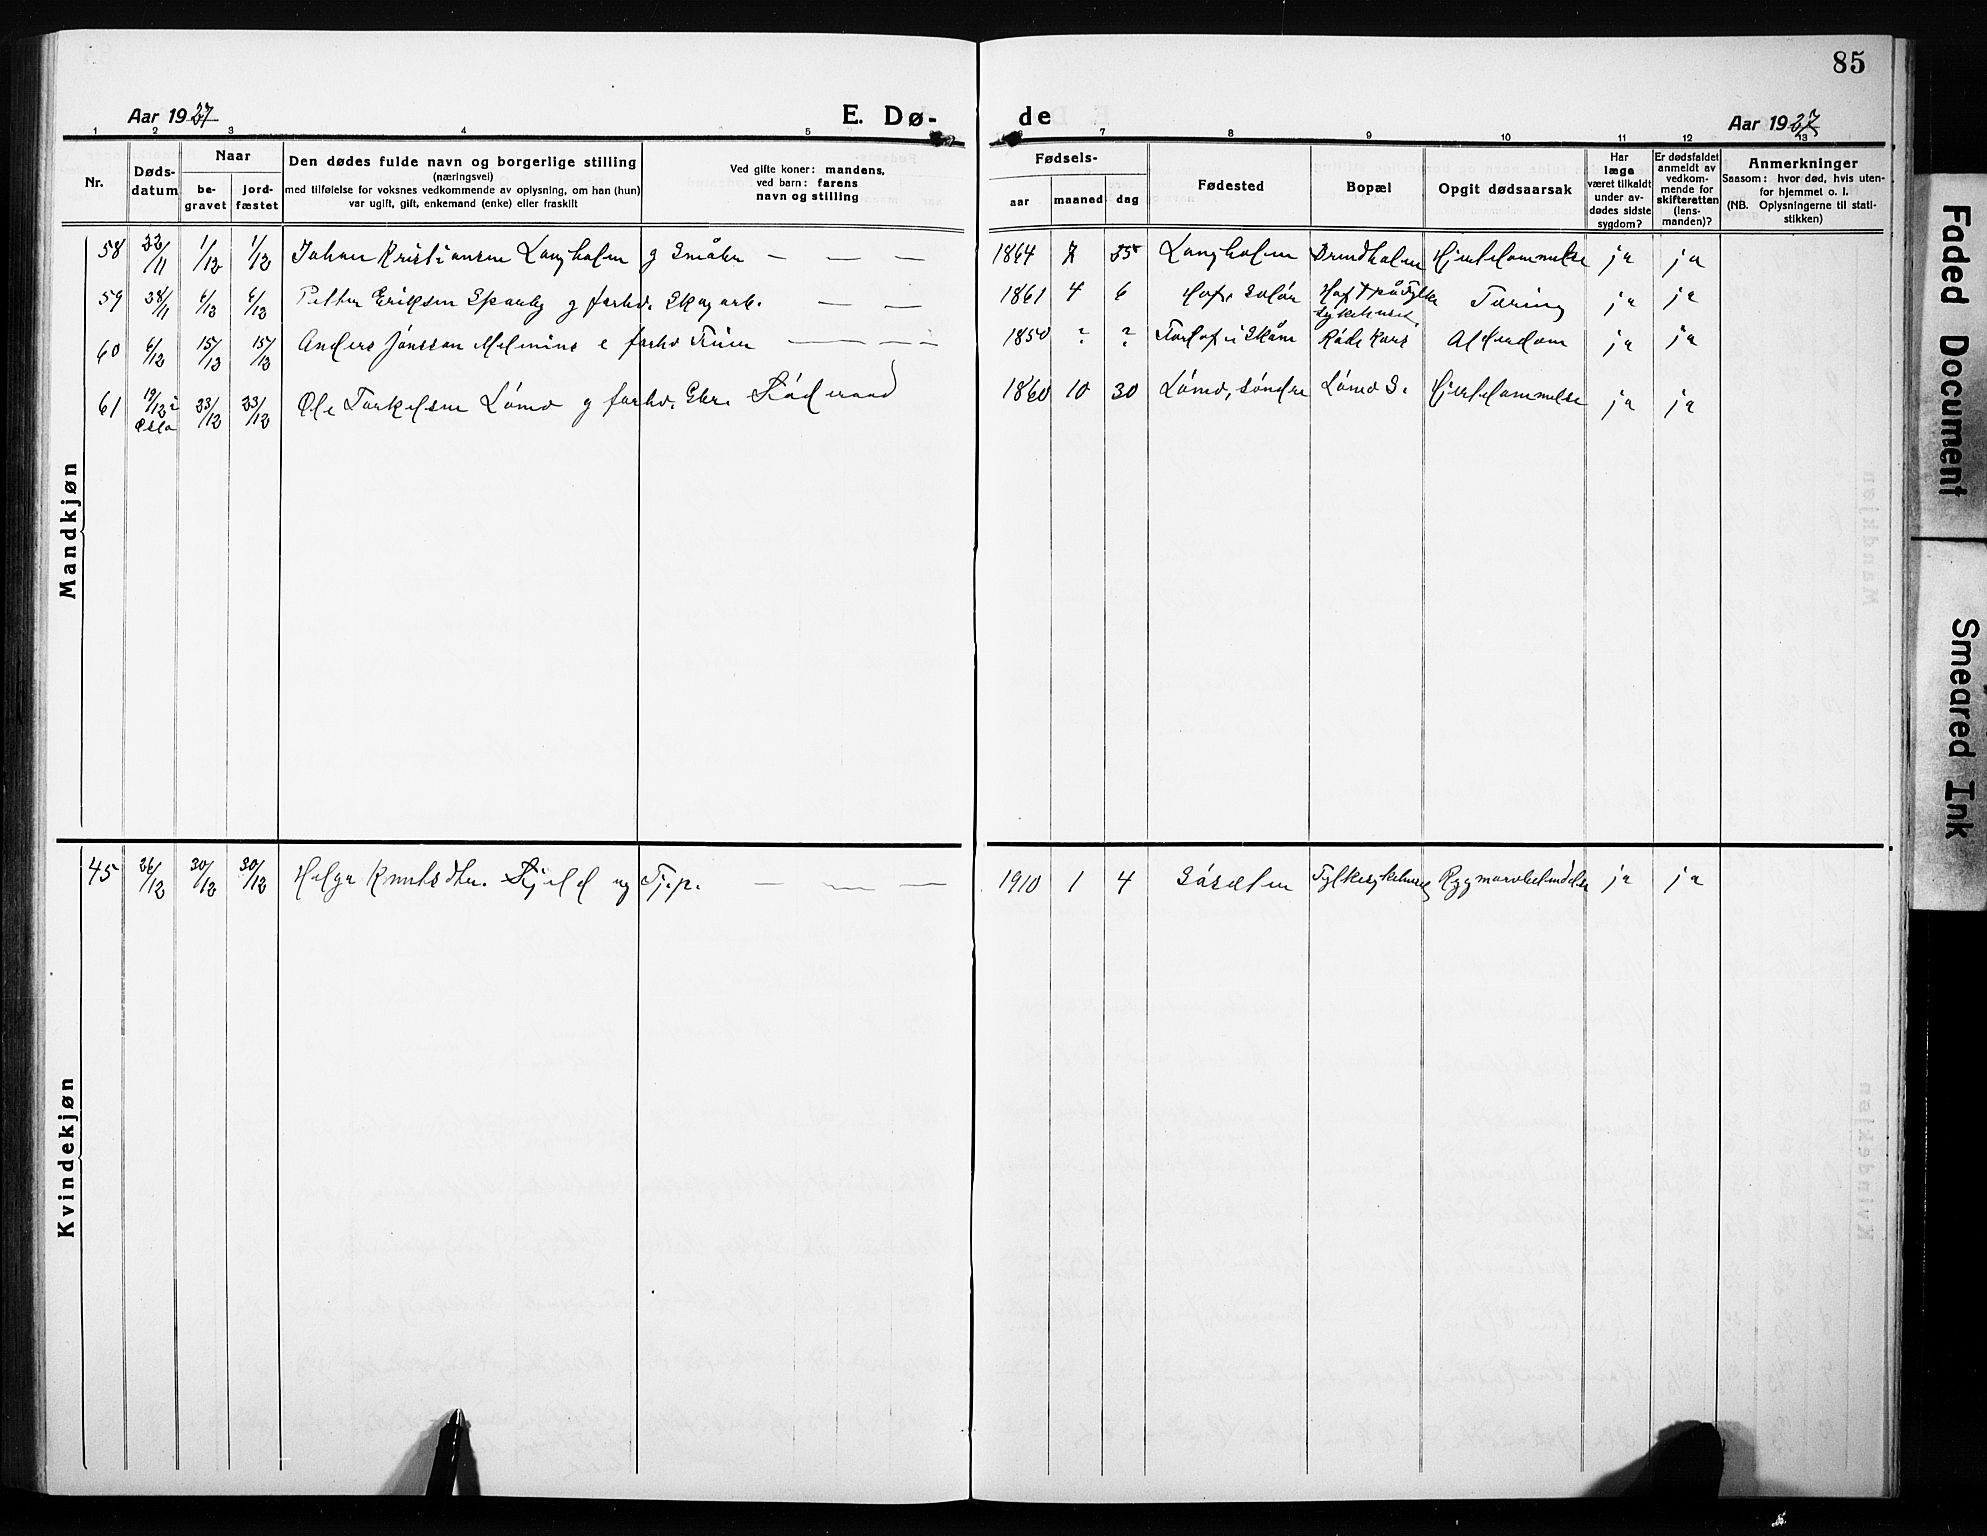 85
Aar 1927
E. Dø-
de
Aar 1927
1 2 3 4 5 6 7 8 9 10 11 12 13
Nr.
Døds-
datum
Naar
be-
gravet
jord-
fæstet
Den dødes fulde navn og borgerlige stilling
(næringsvei)
med tilføielse for voksnes vedkommende av oplysning, om han (hun)
var ugift, gift, enkemand (enke) eller fraskilt
Ved gifte koner: mandens,
ved barn: farens
navn og stilling
Fødsels-
aar
maaned
dag
Fødested
Bopæl
Opgit dødsaarsak
Har
læge
været tilkaldt
under av-
dødes sidste
sygdom?
Er dødsfaldet
anmeldt av
vedkom-
mende for
skifteretten
(lens-
manden)?
Anmerkninger
Saasom: hvor død, hvis uten-
for hjemmet o. l.
(NB. Oplysningerne til stati-
stikken)
Mandkjøn
58 22/11 1/12 1/12 Johan Kristiansen Langholm g Småbr — — — 1864 7 25 Langholm Brundholm Hjertelammelse ja ja
59 28/11 6/12 6/12 Petter Eriksen Sparby g forhv. Skogarb. — — 1861 4 6 Hof, Solør Hof † på Fylke
sykehuset. Tæring ja ja
60 6/12 15/12 15/12 Anders Jönsson e forhv — — — 1850 ? ? i Skåne Røde Kors Alderdom ja ja
61 19/12 i
Oslo 23/12 23/12 Ole Torkelsen Lømo g forhv. Gbr. 1860 10 30 Lømo, søndre Lømo S. Hjertelammelse ja ja
Kvindekjøn
45 26/12 30/12 30/12 Helga Knutsdtr. Fjeld ug Tj.p. — — — 1910 1 4 Såsæten Fylkesykehuset Rygmarvbetændelse ja ja
Faded Document
Smeared Ink